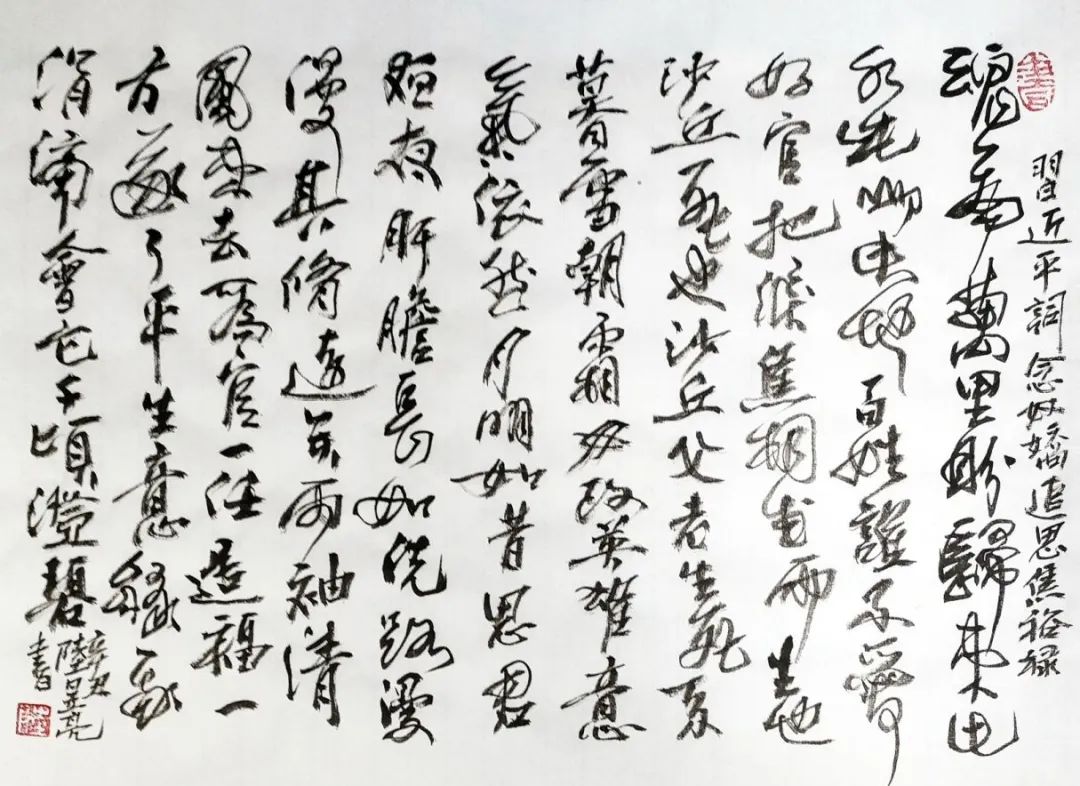 習近平詞念奴嬌追思焦裕祿
魂飛萬里盼歸來此
水此山此地百姓誰不愛
好官把淚焦桐成雨生也
沙丘死也沙丘父老生死系
暮雪朝霜毋改英雄意
氣依然月明如昔思君
夜夜肝膽長如洗路漫
漫其脩遠矣兩袖清
風來去為官一任造福一
方遂了平生意綠我
涓滴會它千頃澄碧
辛丑
陸昱亮
書